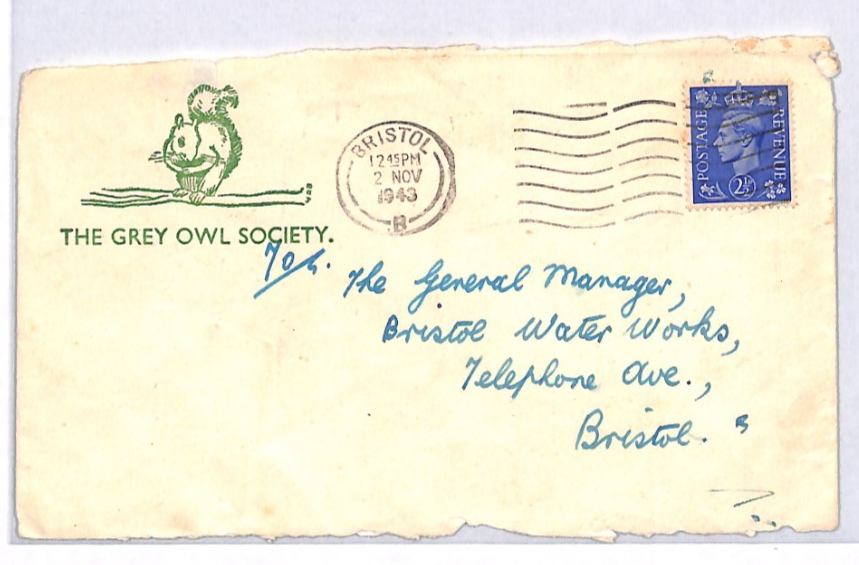 THE GREY OWL SOCIETY.
BRISTOL
12 45 PM
2 NOV
1943
B
POSTAGE
REVENUE
2½
The General Manager,
Bristol Water Works,
Telephone Ave.,
Bristol.